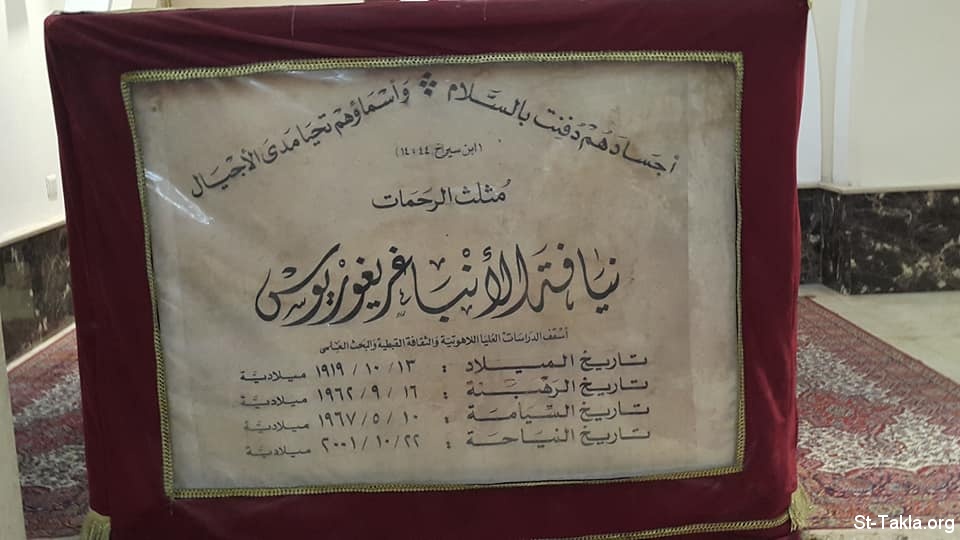 أجسادهم دفنت بالسَّلام ❖ وَأسْمَاؤهم تحيَا مَدَى الأجيَال
(ابن سيراخ ٤٤ : ١٤)
مُثلث الرحَمَات
نيَافة الأنبَا غريغوريوس
أسقف الدراسات العليا اللاهوتية والثقافة القبطية والبحث العلمى
تاريخ الميلاد : ١٣ / ١٠ / ١٩١٩ ميلاديَّة
تاريخ الرهْبَنة : ١٦ / ٩ / ١٩٦٢ ميلاديَّة
تاريخ السِّيامَة : ١٠ / ٥ / ١٩٦٧ ميلاديَّة
تاريخ النيَاحَة : ٢٢ / ١٠ / ٢٠٠١ ميلاديَّة
St-Takla.org